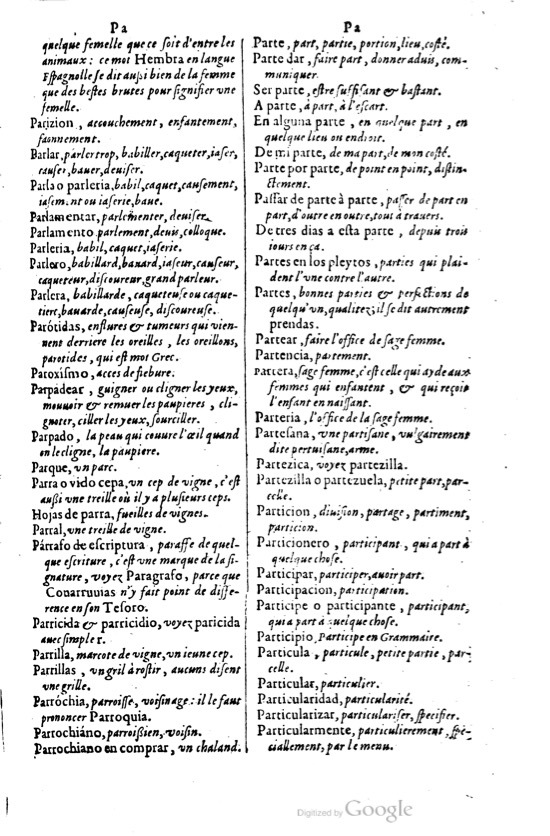 Pa
quelque femelle que ce ſoit d'entre les
animaux : ce mot Hembra en langue
Eſpagnolle ſe dit auſsi bien de la femme
que des beſtes brutes pour ſignifier vne
femelle.
Parizion, accouchement, enfantement,
faonnement.
Parlar, parler trop, babiller, caqueter, iaſer,
cauſer, bauer, deuiſer.
Parla o parleria, babil, caquet, cauſement,
iaſement ou iaſerie, baue.
Parlamentar, parlementer, deuiſer.
Parlamento parlement, deuis, colloque.
Parleria, babil, caquet, iaſerie.
Parlero, babillard, bauard, iaſeur, cauſeur,
caqueteur, diſcoureur, grand parleur.
Parlera, babillarde, caqueteuſe ou caque-
tiere, bauarde, cauſeuſe, diſcoureuſe.
Parótidas, enflures & tumeurs qui vien-
nent derriere les oreilles, les oreillons,
parotides, qui eſt mot Grec.
Paroxiſmo, acces de fiebure.
Parpádear, guigner ou cligner les yeux,
mouuoir & remuer les paupieres, cli-
gneter, ciller les yeux, ſourciller.
Parpado, la peau qui couure l'œil quand
on le cligne, la paupiere.
Parque, vn parc.
Parra o vido cepa, vn cep de vigne, c'eſt
auſsi vne treille où il y a pluſieurs ceps.
Hojas de parra, fueilles de vignes.
Parral, vne treille de vigne.
Párrafo de eſcriptura, paraffe de quel-
que eſcriture, c'eſt vne marque de la ſi-
gnature, voyez Paragrafo, parce que
Couarruuias n'y fait point de diffe-
rence en ſon Teſoro.
Parricida & parricidio, voyez paricida
auec ſimple r.
Parrilla, marcote de vigne, vn ieune cep.
Parrillas, vn gril à roſtir, aucuns diſent
vne grille.
Parróchia, parroiſſe, voiſinage : il le faut
prononcer Parroquia.
Parrochiáno, parroißien, voiſin.
Parrochiano en comprar, vn chaland.
Pa
Parte, part, partie, portion, lieu, coſté.
Parte dar, faire part, donner aduis, com-
muniquer.
Ser parte, eſtre ſuffiſant & baſtant.
A parte, à part, à l'eſcart.
En alguna parte, en quelque part, en
quelque lieu ou endroit.
De mi parte, de ma part, de mon coſté.
Parte por parte, de point en point, diſtin-
ctement.
Paſſar de parte à parte, paſſer de part en
part, d'outre en outre, tout à trauers.
De tres dias a eſta parte, depuis trois
iours en ça.
Partes en los pleytos, parties qui plai-
dent l'vne contre l'autre.
Partes, bonnes parties & perfections de
quelqu'vn, qualitez; il ſe dit autrement
prendas.
Partear, faire l'office de ſage femme.
Partencia, partement.
Partera, ſage femme, c'eſt celle qui ayde aux
femmes qui enfantent, & qui reçoit
l'enfant en naiſſant.
Parteria, l'office de la ſage femme.
Parteſana, vne partiſane, vulgairement
dite pertuiſane, arme.
Partezica, voyez partezilla.
Partezilla o partezuela, petite part, par-
celle.
Particion, diuiſion, partage, partiment,
particion.
Particionero, participant, qui a part à
quelque choſe.
Participar, participer, auoir part.
Participacion, participation.
Participe o participante, participant,
qui a part à quelque choſe.
Participio, Participe en Grammaire.
Particula, particule, petite partie, par-
celle.
Particular, particulier.
Particularidad, particularité.
Particularizar, particulariſer, ſpecifier.
Particularmente, particulierement, ſpé-
ciallement, par le menu.
Digitized by Google